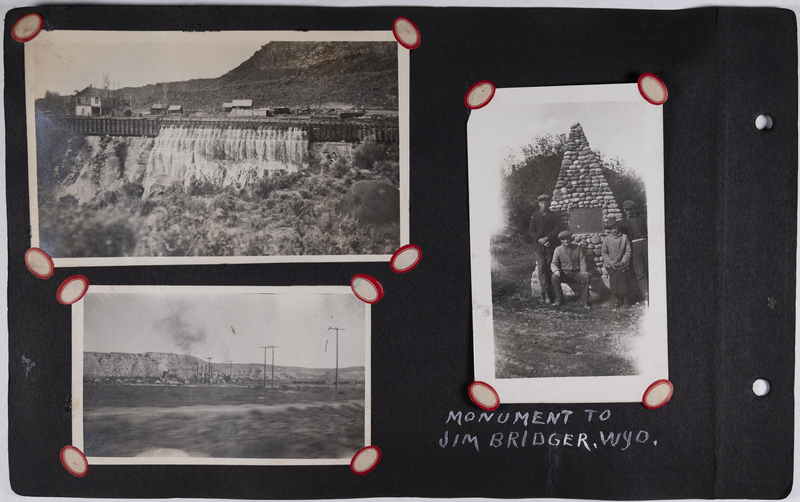 MONUMENT TO
JIM BRIDGER, WYO.